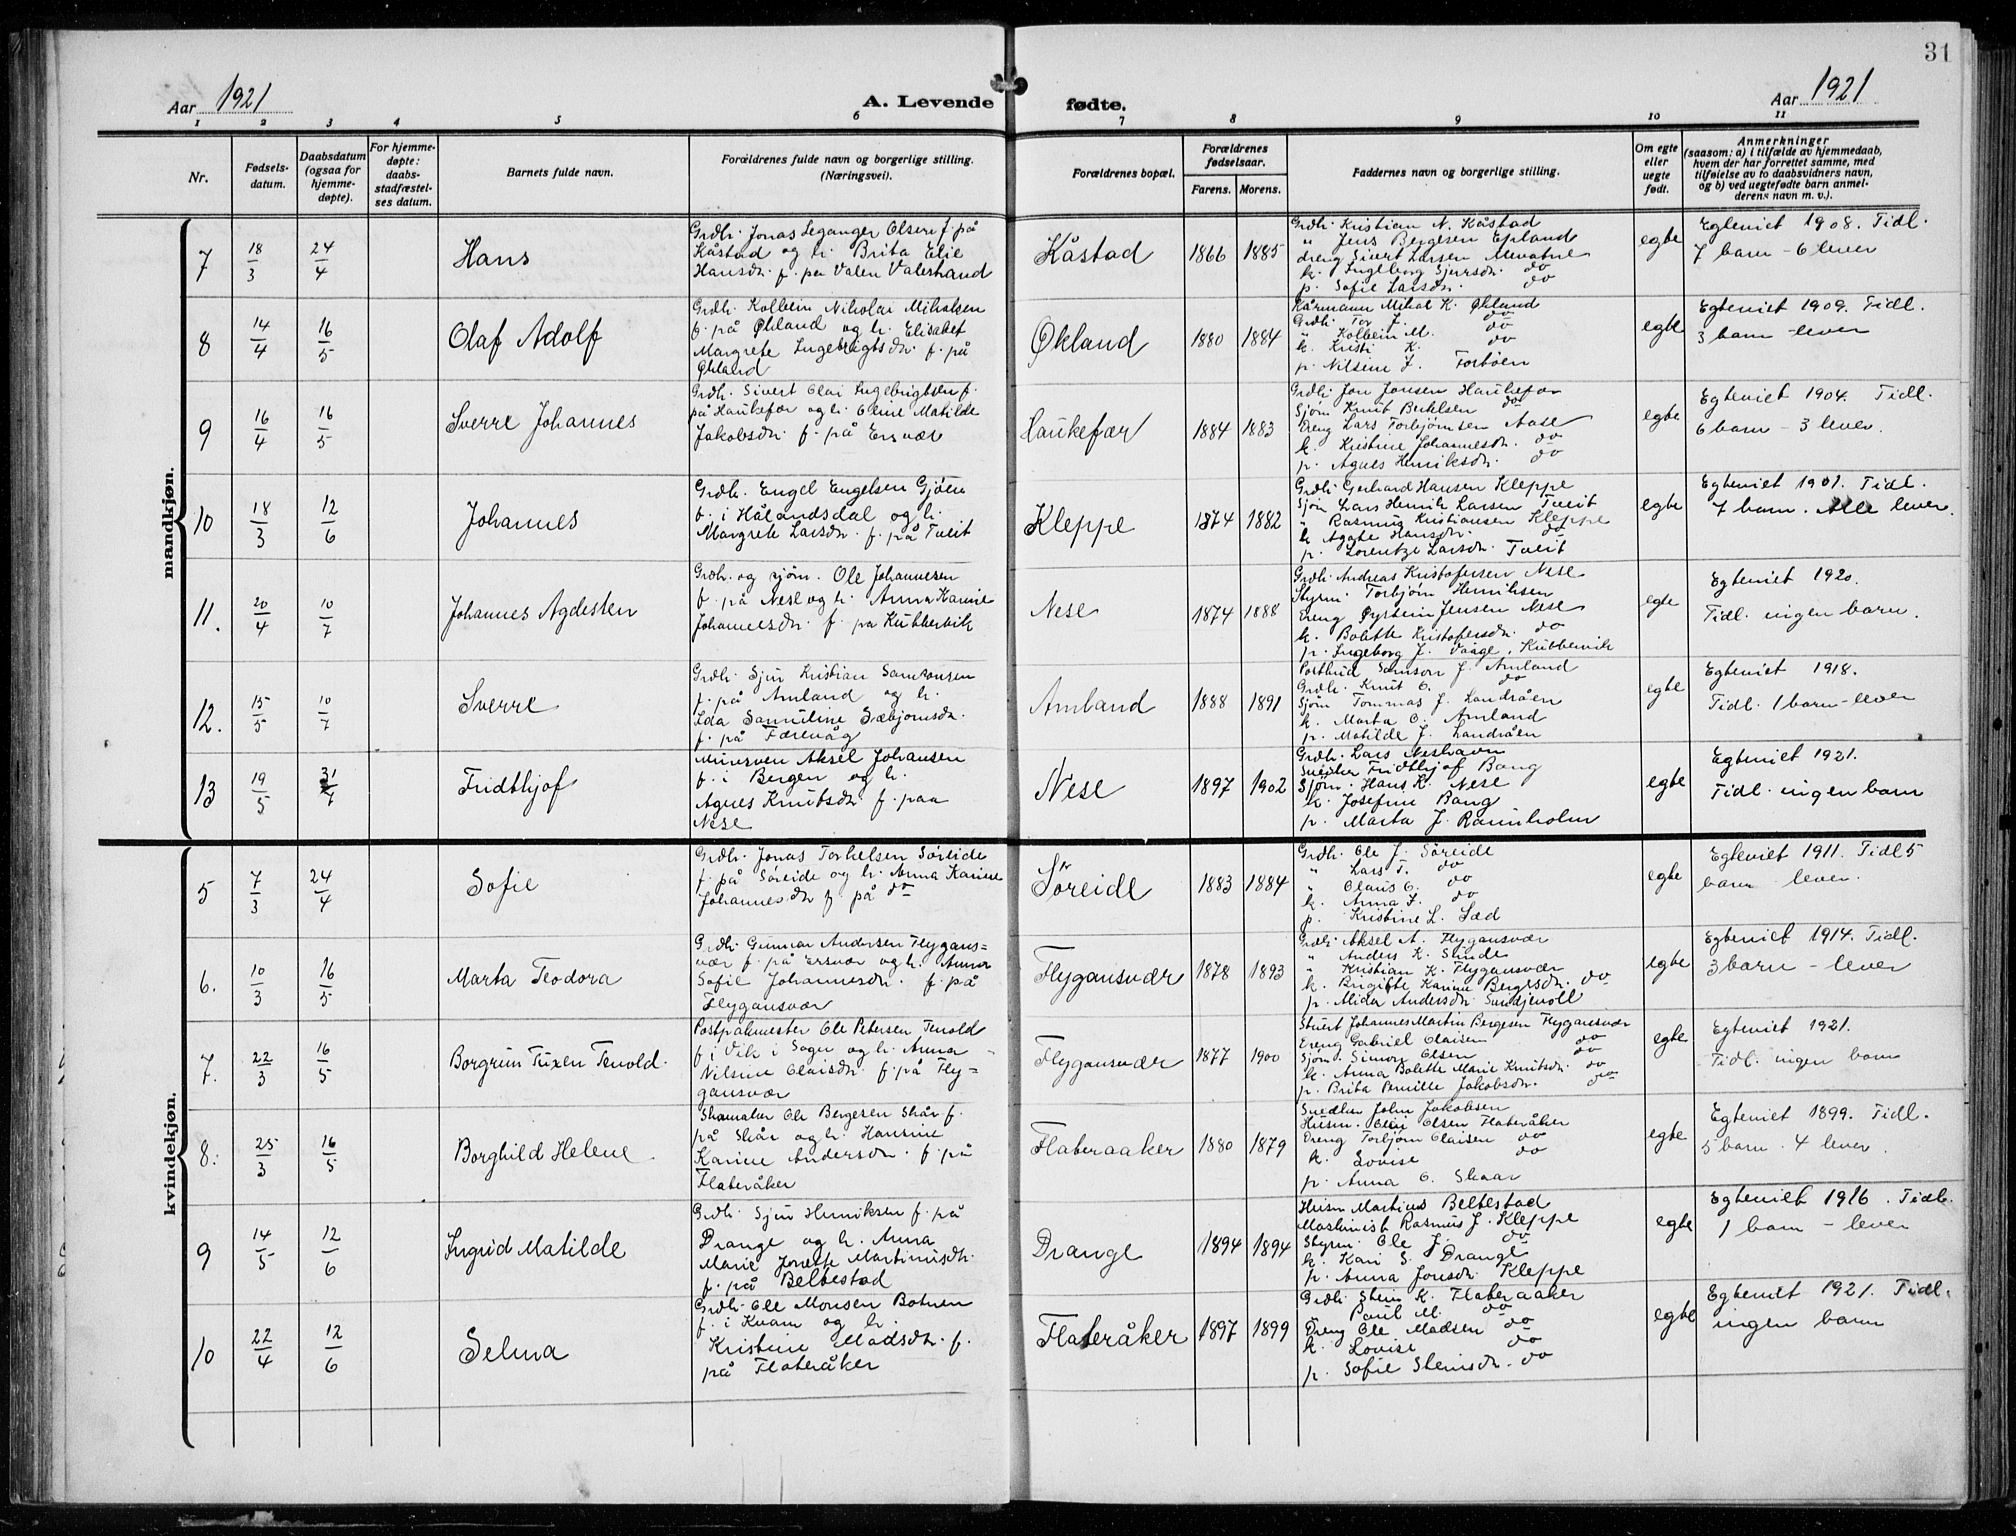 31
Aar 1921
A. Levende fødte.
Aar 1921
1 2 3 4 5 6 7 8 9 10 11
Nr.
Fødsels-
datum.
Daabsdatum
(ogsaa for
hjemme-
døpte).
For hjemme-
døpte:
daabs-
stadfæstel-
ses datum.
Barnets fulde navn.
Forældrenes fulde navn og borgerlige stilling.
(Næringsvei).
Forældrenes bopæl.
Forældrenes
fødselsaar.
Farens. Morens.
Faddernes navn og borgerlige stilling.
Om egte
eller
uegte
født.
Anmerkninger
(saasom: a) i tilfælde av hjemmedaab,
hvem der har forrettet samme, med
tilføielse av to daabsvidners navn,
og b) ved uegtefødte barn anmel-
derens navn m. v.).
mandkjøn.
7
18/3
24/4
Hans
Grdb. Jonas Leganger Olsen f. på
Kåstad og h. Brita Elie
Hansdr. f. paa Valen Valestrand
Kåstad
1866 1885
Grdb. Kristian N. Kåstad
" Jens Bergesen Epland
dreng Sivert Larsen
k. Ingeborg Sjursdr. do
p. Sofie Larsdr. do
egte
Egteviet 1908. Tidl.
7 barn - 6 lever
8
14/4
16/5
Olaf Adolf
Grdb. Kolbein Nikolai Mikalsen
f. på Økland og h. Elisabet
Margrete Ingebrigtsdr. f. på
Økland
Økland
1880 1884
Kårmann Mikal K. Økland
Grdb. Tor J. do
" Kolbein M. do
k. Kristi K. do
p. Nilsine J. Torbøen
egte
Egteviet 1909. Tidl.
3 barn - lever
9
16/4
16/5
Sverre Johannes
Grdb. Sivert Olai Ingebrigtsen f.
på Haukefær og h. Oline Matilde
Jakobsdr. f. på Ersvær
Haukefær
1884 1883
Grdb. Jon Jonsen Haukefær
Sjøm. Knut Berthelsen do
Dreng Lars Torbjørnsen Aase
k. Kristine Johannesdr. do
p. Agnes Henriksdr. do
egte
Egteviet 1904. Tidl.
6 barn - 3 lever.
10
18/3
12/6
Johannes
Grdb. Engel Engelsen Gjøen
f. i Hålandsdal og h.
Margrete Larsdr. f. på Tveit
Kleppe
1874 1882
Grdb. Gerhard Hansen Kleppe
Sjøm Lars Henrik Larsen Tveit
" Rasmus Kristiansen Kleppe
k. Agate Hansdr. do
p. Lorentze Larsdr. Tveit
egte
Egteviet 1901. Tidl.
7 barn. Alle lever.
11.
20/4
10/7
Johannes Agdesten
Grdb. og sjøm. Ole Johannesen
f. på Nese og h. Anna Karine
Johannesdr. f. på Kubbervik
Nese
1874 1888
Grdb. Andreas Kristofersen Nese
Styrm. Torbjørn Henriksen
Dreng Øystein Jensen Nese
k. Bolette Kristofersdr. do
p. Ingeborg J. Vaage, Kubbervik
egte
Egteviet 1920.
Tidl. ingen barn.
12.
15/5
10/7
Sverre
Grdb. Sjur Kristian Samsonsen
f. på Amland og h.
Ida Samuline Sæbjørnsdr.
f. på Færevåg
Amland
1888 1891
Postbud Samson J. Amland
Grdb. Knut O. do
Sjøm Tommas J. Landråen
k. Marta O. Amland
p. Matilde J. Landråen
egte
Egteviet 1918.
Tidl. 1 barn - lever
13
19/5
31/7
Fridthjof
Minesven Aksel Johansen
f. i Bergen og h.
Agnes Knutsdr. f. paa
Nese
Nese
1897 1902
Grdb. Lars Neshavn
Snedker Fridthjof Bang
Sjøm. Hans K. Nese
k. Josefine Bang
p. Marta J. Ravnholm
egte
Egteviet 1921.
Tidl. ingen barn
kvindekjøn.
5
7/3
24/4
Sofie
Grdb. Jonas Torkelsen Søreide
f. på Søreide og h. Anna Karine
Johannesdr. f. på do
Søreide
1883 1884
Grdb. Ole J. Søreide
" Lars T. do
" Olaus O. do
k. Anna J. do
p. Kristine L. Sæd
egte
Egteviet 1911. Tidl 5
barn lever.
6.
10/3
16/5
Marta Teodora
Grdb. Gunnar Andersen Flygans=
vær f. på Ersvær og h. Anna
Sofie Johannesdr. f. på
Flygansvær
Flygansvær
1878 1893
Grdb. Aksel A. Flygansvær
" Anders K. Skude
" Kristian K. Flygansvær
k. Brigitte Karine Bergesdr. do
p. Alida Andersdr. Sundsvoll
egte
Egteviet 1914. Tidl.
3 barn - lever
7.
22/3
16/5
Borgrun Tuxen Tenold.
Postpakmester Ole Petersen Tenold
f. i Vik i Sogn og h. Anna
Nilsine Olaisdr. f. på Fly=
gansvær
Flygansvær
1877 1900
Stuert Johannes Martin Bergesen Flygansvær
Dreng Gabriel Olaisen do
Sjøm. Simon Olsen do
k. Anna Bolette Marie Knutsdr. do
p. Brita Pernille Jakobsdr. do
egte
Egteviet 1921.
Tidl. ingen barn
8.
25/3
16/5
Borghild Helene.
Skomaker Ole Bergesen Skår f.
på Skår og h. Hansine
Karine Andersdr. f. på
Flateråker
Flateraaker
1880 1879
Snedker John Jakobsen
Husm. Olai Olsen Flateråker
Dreng Torbjørn Olaisen do
k. Lovise do
p. Anna O. Skaar
egte
Egteviet 1899. Tidl.
5 barn. 4 lever.
9
14/5
12/6
Ingrid Matilde
Grdb. Sjur Henriksen f. på
Drange og h. Anna
Marie Jonette Martinusdtr.
f. på Beltestad
Drange
1894 1894
Husm Martius Beltestad
Maskinist Rasmus J. Kleppe
Styrm. Ole J. do
k. Kari S. Drange
p. Anna Jonsdr. Kleppe
egte
Egteviet 1916. Tidl.
1 barn - lever
10
22/4
12/6
Selma
Grdb. Ole Monsen Botnen
f. i Kvam og h.
Kristine Madsdr. f.
på Flateråker
Flateråker
1897 1899
Grdb. Stein K. Flateraaker
Paul M. do
Dreng Ole Madsen do
k. Lovise do
p. Sofie Steinsdr. do
egte
Egteviet 1921. Tidl.
ingen barn